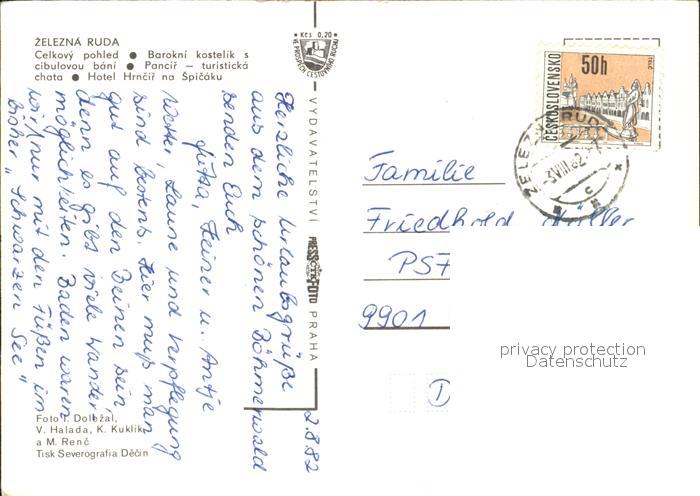 ŽELEZNÁ RUDA
Celkový pohled ● Barokní kostelík s
cibulovou bání ● Pancíř – turistická
chata ● Hotel Hrnčíř na Špičáku
★ Kčs 0,20 ★
VE PROSPĚCH CESTOVNÍHO RUCHU
Herzliche Urlaubsgrüße
aus dem schönen Böhmerwald
senden Euch
Jutta, Heiner u. Antje
Wetter, Laune und Verpflegung
sind bestens. Hier muß man
gut auf den Beinen sein,
denn es gibt viele Wander-
möglichkeiten. Baden waren
wir nur mit den Füßen im
bisher "Schwarzen See"
2.8.82
Foto I. Doležal,
V. Halada, K. Kuklík
a M. Renč
Tisk Severografia Děčín
VYDAVATELSTVÍ PRESSFOTO PRAHA
ČTK
ČESKOSLOVENSKO
50h
TELČ
ŽELEZNÁ RUDA
-3.VIII.82
C
Familie
Friedhold Müller
PSF
9901
D
privacy protection
Datenschutz